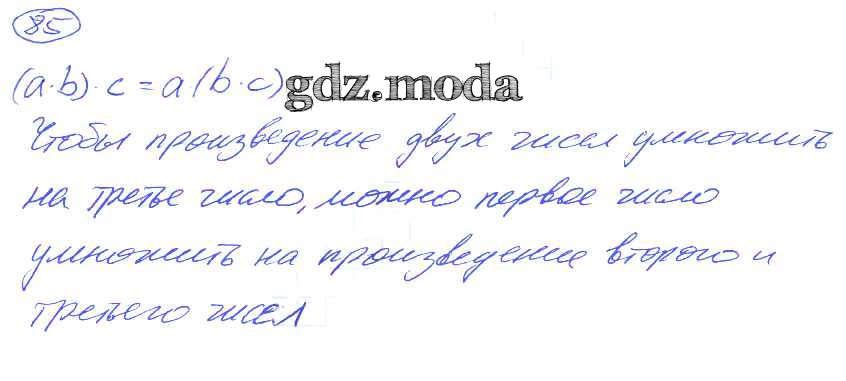 85
(a·b)·c=a(b·c) gdz.moda
Чтобы произведение двух чисел умножить
на третье число, можно первое число
умножить на произведение второго и
третьего чисел